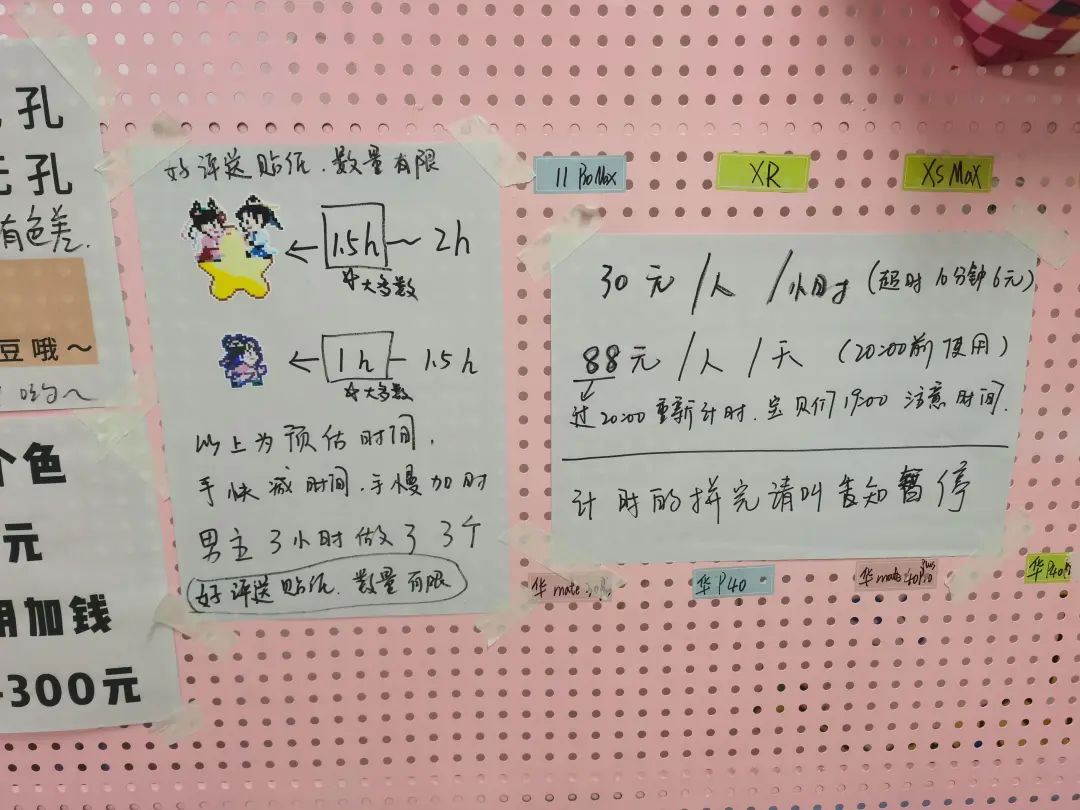 孔
元孔
有色差.
豆哦～
个色
元
加钱
300元
好评送贴纸.数量有限
1.5h～2h
☆大多数
1h-1.5h
☆大多数
以上为预估时间,
手快减时间.手慢加时
男主3小时做了3个
好评送贴纸.数量有限
11 ProMax
XR
XS Max
30元/人/小时(超时10分钟6元)
88元/人/天(20:00前使用)
过20:00重新计时.宝贝们19:00注意时间.
计时的拼完请叫告知暂停
华 mate 30
华 P40
华 mate 40Pro Plus
华 P40